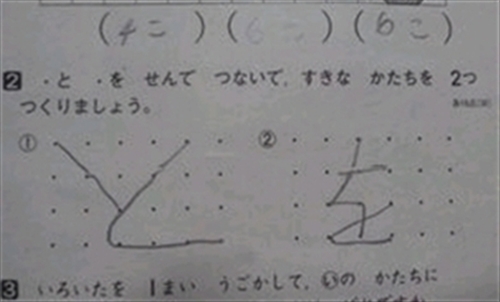 (4こ) (6こ) (6こ)
2 ・と ・を せんで つないで, すきな かたちを 2つ
つくりましょう。
① と ② を
3 いろいたを 1まい うごかして, の かたちに